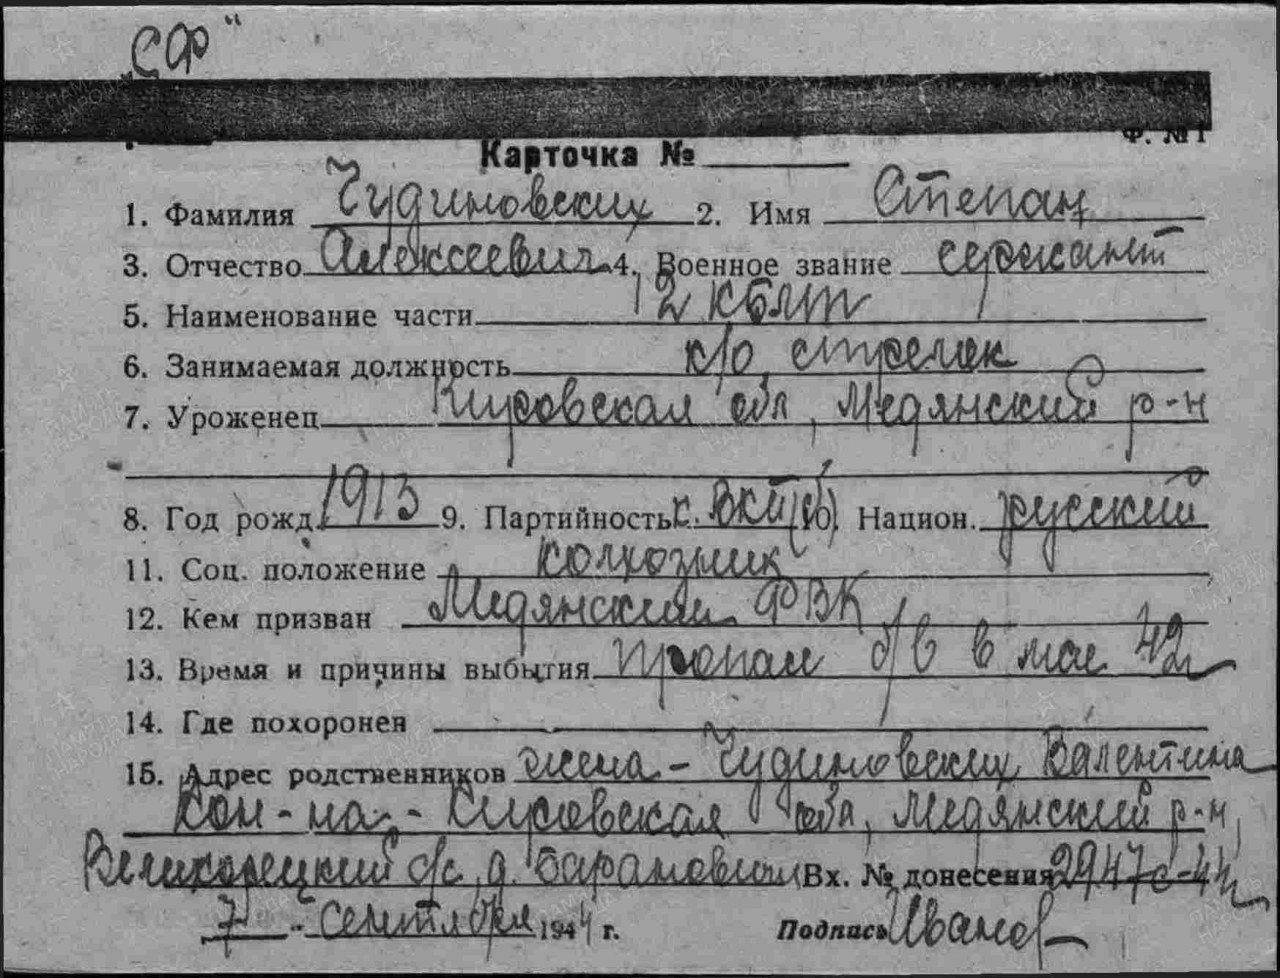 „СФ"
Ф. № 1
Карточка №
1. Фамилия Чудиновских 2. Имя Степан
3. Отчество Алексеевич 4. Военное звание сержант
5. Наименование части 12 кблт
6. Занимаемая должность к/о стрелок
7. Уроженец Кировская обл, Медянский р-н
8. Год рожд. 1913 9. Партийность к. ВКП(б) Национ. русский
11. Соц. положение колхозник
12. Кем призван Медянский РВК
13. Время и причины выбытия пропал б/в в мае 42
14. Где похоронен
15. Адрес родственников жена - Чудиновских Валентина
Кон-на - Кировская обл, Медянский р-н,
Великорецкий с/с, д. Барановичи Вх. № донесения 2947с-44
7 - сентября 1944 г. Подпись Иванов